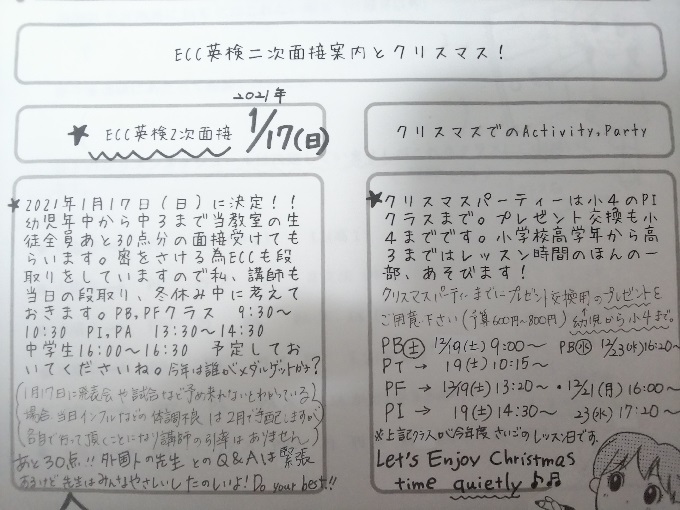 ECC英検二次面接案内とクリスマス!
2021年
★ ECC英検2次面接 1/17(日)
★2021年1月17日(日)に決定!!
幼児年中から中3まで当教室の生
徒全員あと30点分の面接受けても
らいます。密をさける為ECCも段
取りをしていますので私、講師も
当日の段取り、冬休み中に考えて
おきます。PB,PFクラス 9:30〜
10:30 PI,PA 13:30〜14:30
中学生16:00〜16:30 予定してお
いてくださいね。今年は誰がメダルゲットかナ?
(1月17日に発表会や試合など予め来れないとわかっている)
場合、当日インフルなどの体調不良は2月で手配しますが
各自で行って頂くことになり講師の引率はありません)
あと30点!!外国人の先生とのQ&Aは緊張
あるけど先生はみんなやさしいしたのしいよ!Do your best!!
クリスマスでのActivity,Party
★クリスマスパーティーは小4のPI
クラスまで。プレゼント交換も小
4までです。小学校高学年から高
3まではレッスン時間のほんの一
部、あそびます!
クリスマスパーティまでにプレゼント交換用のプレゼントを
ご用意下さい(予算600円〜800円)幼児から小4まで。
PB(土) 12/19(土) 9:00〜 PB(水) 12/23(水)16:20〜
PT → 19(土) 10:15〜
PF → 12/19(土) 13:20〜・12/21(月) 16:00〜
PI → 19(土) 14:30〜 23(水) 17:20〜
※上記クラスが今年度さいごのレッスン日です。
Let's Enjoy Christmas
time quietly ♪♬